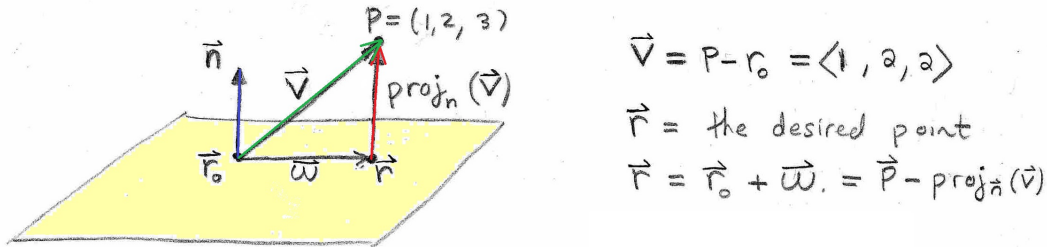 P = (1, 2, 3)
n⃗
v⃗
proj_n (v⃗)
r⃗₀
w⃗
r⃗
v⃗ = P - r₀ = ⟨1, 2, 2⟩
r⃗ = the desired point
r⃗ = r⃗₀ + w⃗. = P⃗ - proj_n⃗ (v⃗)